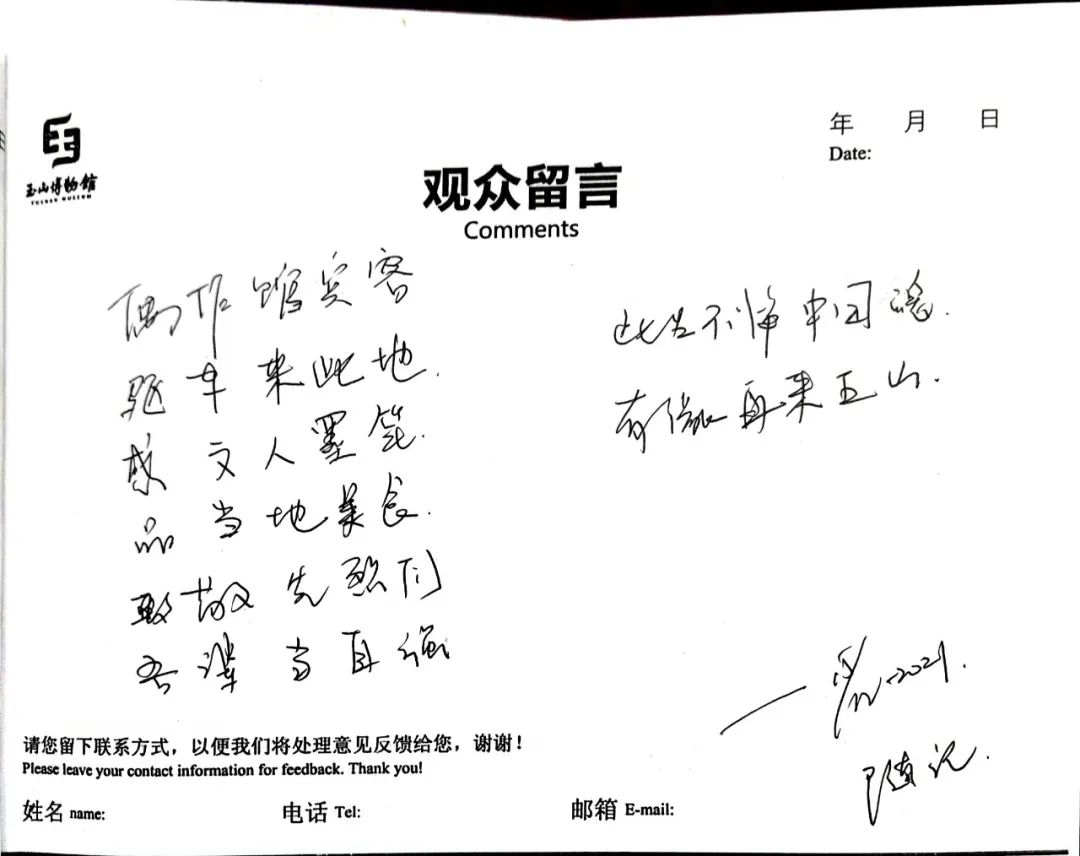 玉山博物馆
YUSHAN MUSEUM
年 月 日
Date:
观众留言
Comments
偶作馆宾客
驱车来此地.
感文人墨笔.
品当地美食.
致敬先烈们
吾辈当自强
此生不悔中国魂.
有缘再来玉山.
2021.
随记.
请您留下联系方式，以便我们将处理意见反馈给您，谢谢！
Please leave your contact information for feedback. Thank you!
姓名 name:
电话 Tel:
邮箱 E-mail: